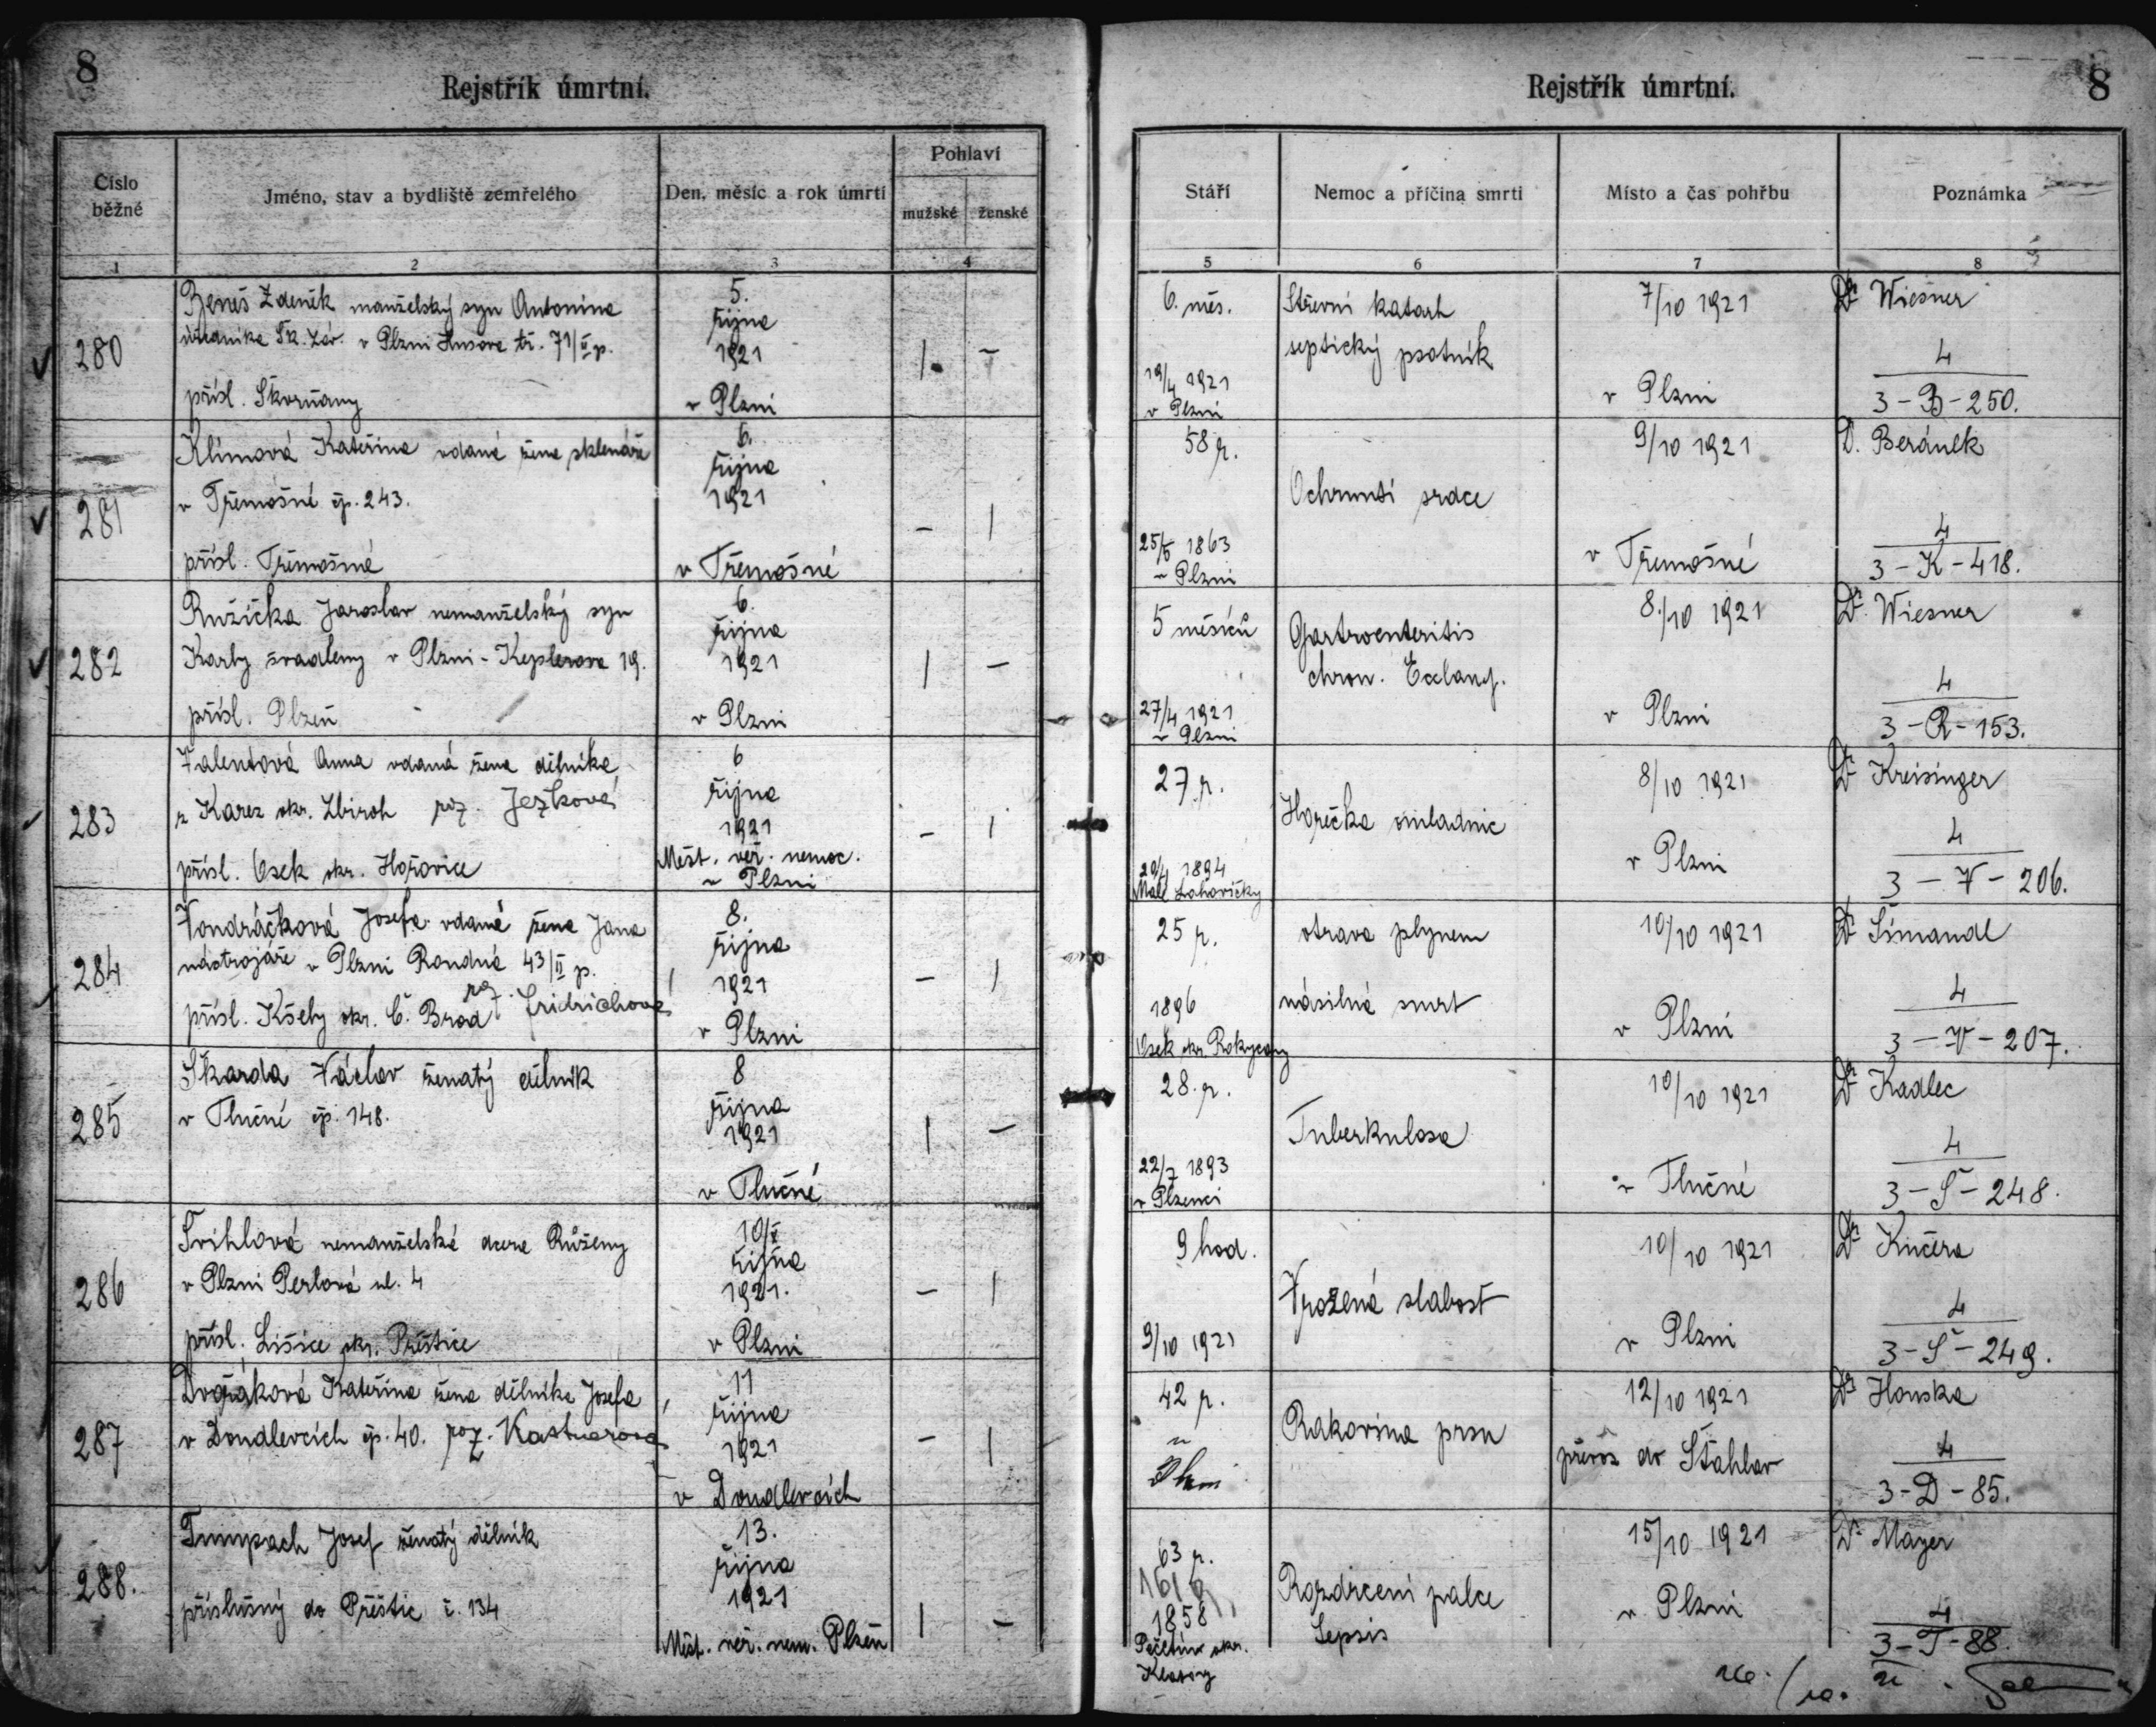 8
Rejstřík úmrtní.
Číslo běžné
Jméno, stav a bydliště zemřelého
Den, měsíc a rok úmrtí
Pohlaví
mužské
ženské
1
2
3
4
280
Beneš Zdeněk manželský syn Antonína
úředníka Šk. Záv. v Plzni Husova tř. 71/II p.
přísl. Skvrňany
5.
října
1921
v Plzni
1.
–
281
Klímová Kateřina vdaná žena sklenáře
v Třemošné čp. 243.
přísl. Třemošná
6.
října
1921
v Třemošné
–
1
282
Růžička Jaroslav nemanželský syn
Karly švadleny v Plzni - Keplerova 19.
přísl. Plzeň
6.
října
1921
v Plzni
1
–
283
Valentová Anna vdaná žena dělníka
z Karez okr. Zbiroh roz. Ježková
přísl. Osek okr. Hořovice
6
října
1921
Měst. veř. nemoc.
v Plzni
–
1
284
Vondráčková Josefa vdaná žena Jana
nástrojáře v Plzni Rondná 43/II p.
roz. Fridrichová
přísl. Kšely okr. Č. Brod
8.
října
1921
v Plzni
–
1
285
Škarda Václav ženatý dělník
v Tlučné čp. 148.
8
října
1921
v Tlučné
1
–
286
Švihlová nemanželská dcera Růženy
v Plzni Perlová ul. 4
přísl. Lišice okr. Přeštice
10/X
října
1921.
v Plzni
–
1
287
Dvořáková Kateřina žena dělníka Josefa
v Doudlevcích čp. 40. roz. Kastnerová
11
října
1921
v Doudlevcích
–
1
288.
Tumpach Josef ženatý dělník
příslušný do Přeštic č. 134
13.
října
1921
Měst. veř. nem. Plzeň
1
–
8
Rejstřík úmrtní.
Stáří
Nemoc a příčina smrti
Místo a čas pohřbu
Poznámka
5
6
7
8
6. měs.
19/4 1921
v Plzni
Střevní katarh
septický psotník
7/10 1921
v Plzni
Dr. Wiesner
4
3 - B - 250.
58 r.
25/5 1863
v Plzni
Ochrnutí srdce
9/10 1921
v Třemošné
D. Beránek
4
3 - K - 418.
5 měsíců
27/4 1921
v Plzni
Gastroenteritis
chron. Eclamp.
8./10 1921
v Plzni
Dr. Wiesner
4
3 - R - 153.
27 r.
20/4 1894
Malé Lahovičky
Horečka omladnic
8/10 1921
v Plzni
Dr Kreisinger
4
3 - V - 206.
25 r.
1896
Osek okr. Rokycany
otrava plynem
násilná smrt
10/10 1921
v Plzni
Dr Šimandl
4
3 - V - 207.
28. r.
22/7 1893
v Plzenci
Tuberkulosa
10/10 1921
v Tlučné
Dr Kadlec
4
3 - Š - 248.
9 hod.
9/10 1921
Vrozená slabost
10/10 1921
v Plzni
Dr Kučera
4
3 - Š - 249.
42 r.
v
Plzni
Rakovina prsu
12/10 1921
převoz do Šťáhlav
Dr Houska
4
3 - D - 85.
63 r.
1858
okr.
Klatovy
Rozdrcení palce
Sepsis
15/10 1921
v Plzni
Dr Mayer
4
3 - T - 88.